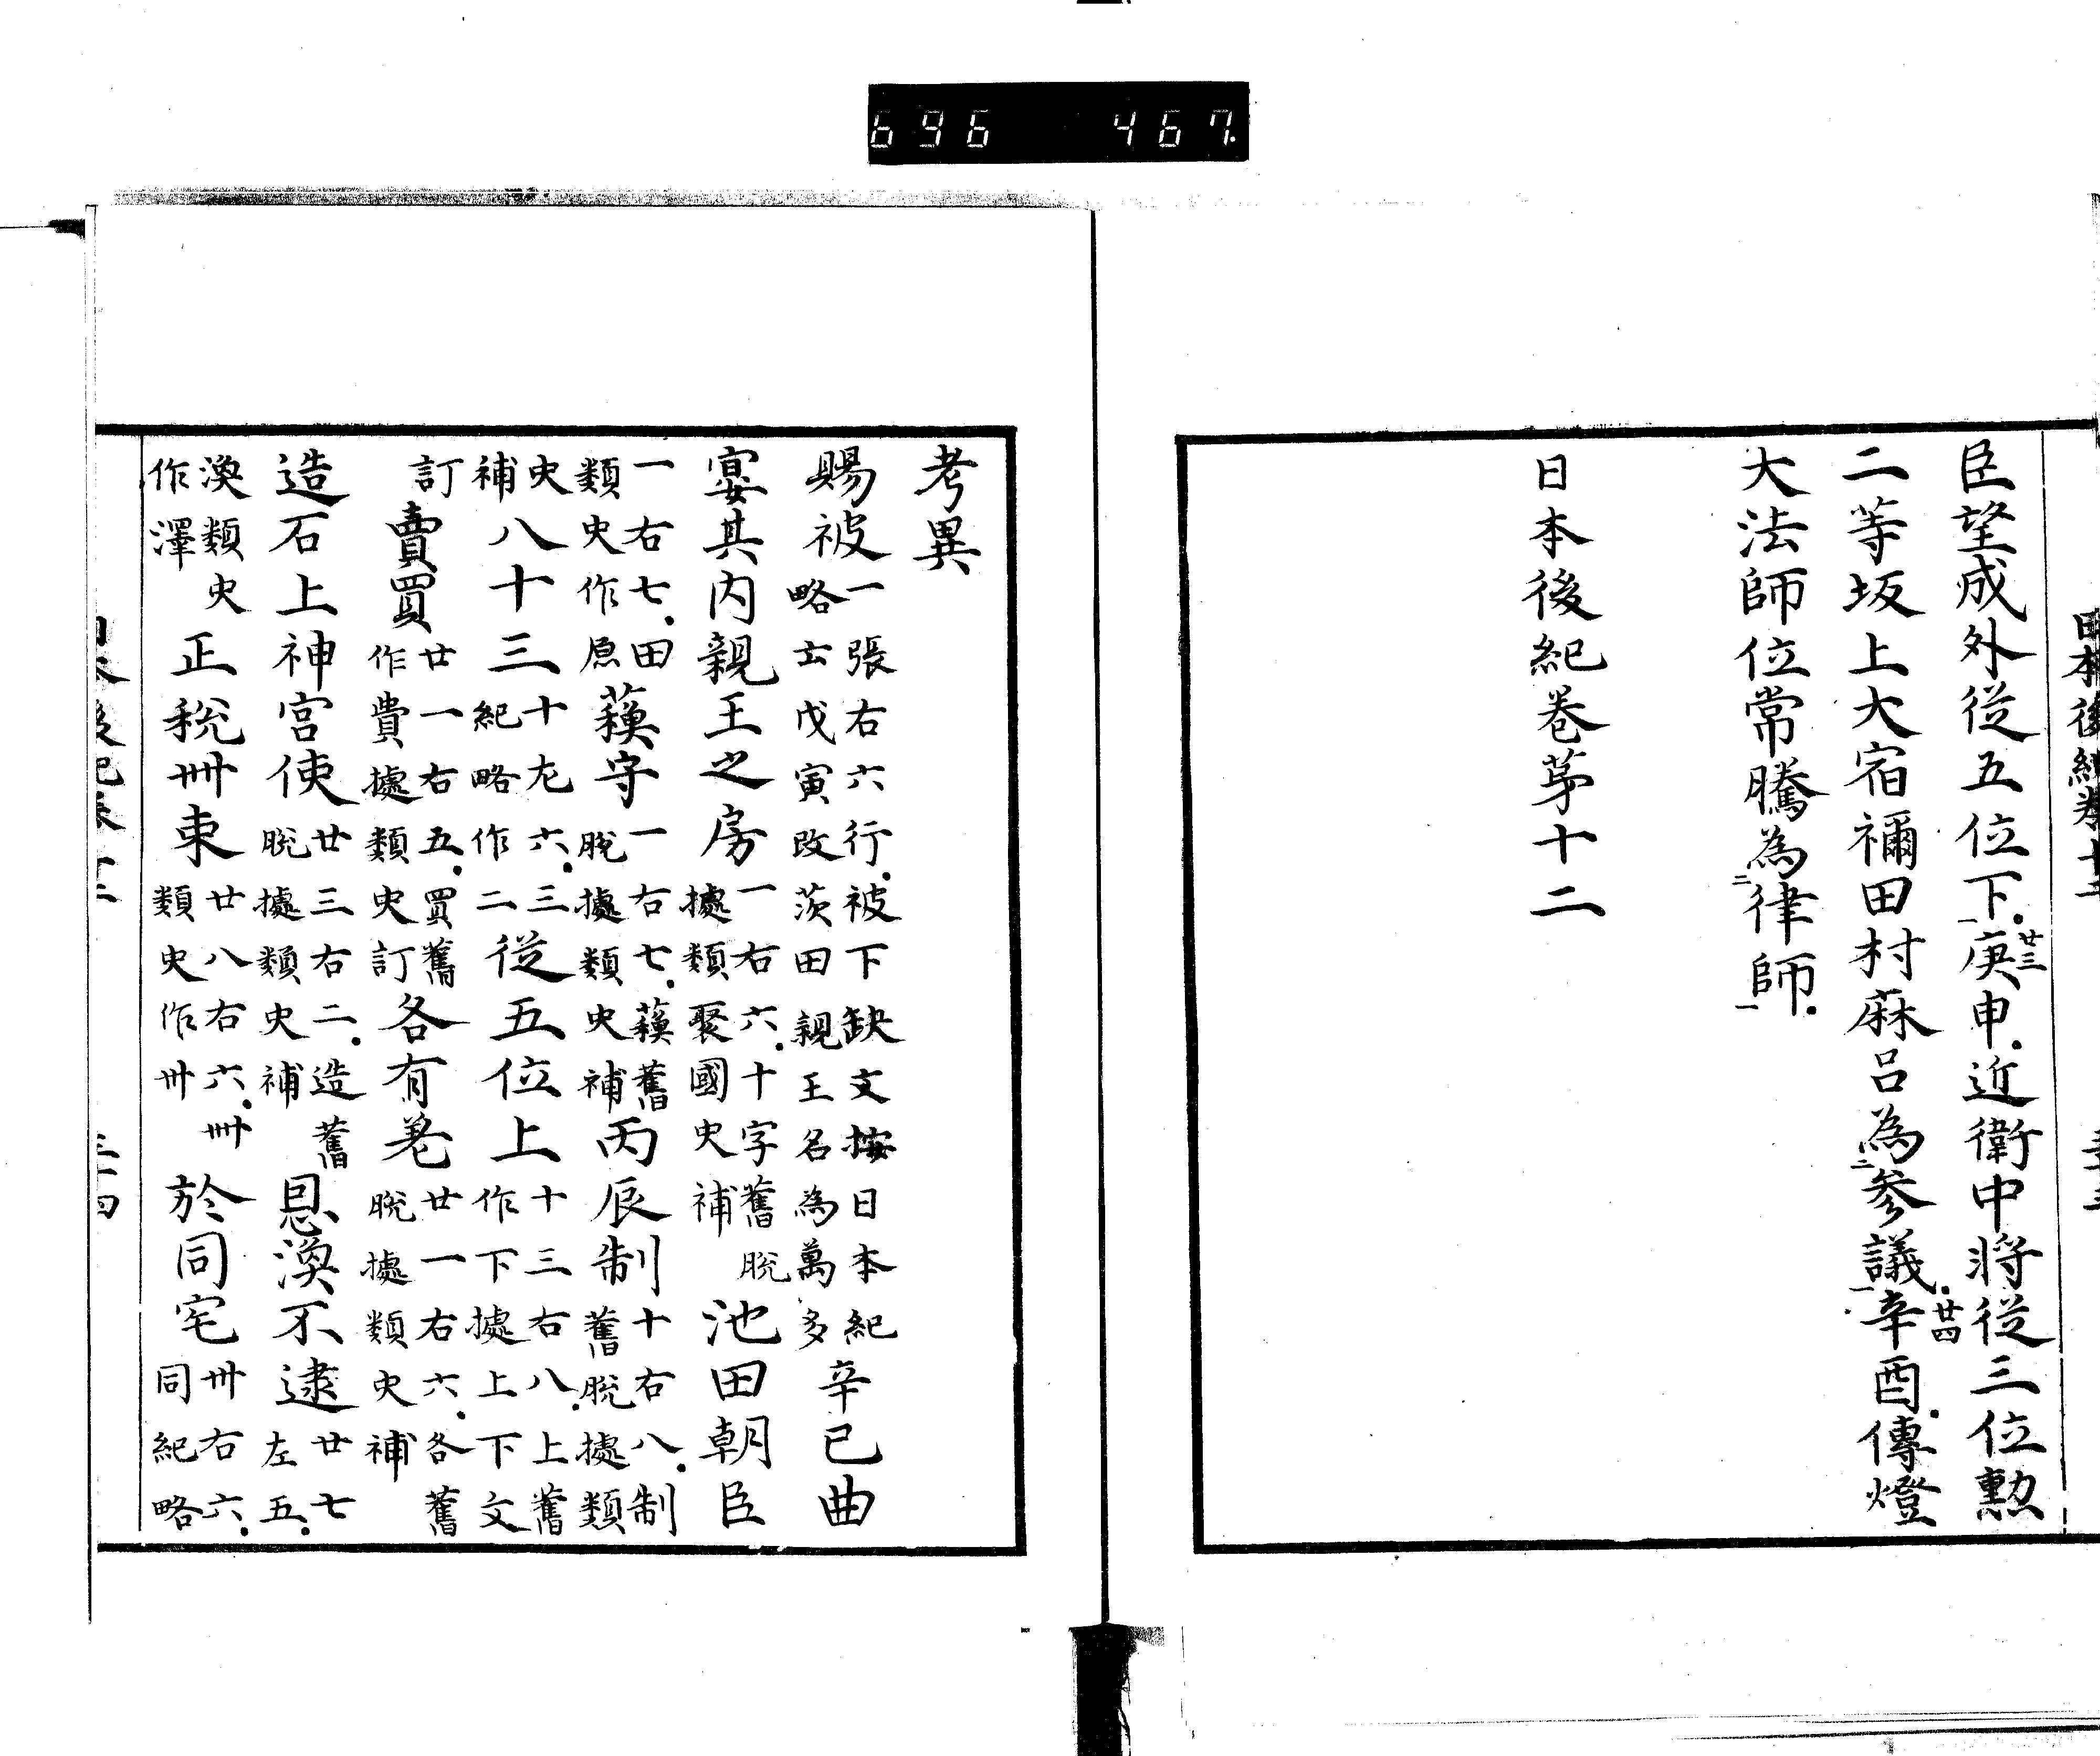 696 467
臣望成外從五位下一庚申廿三近衛中將從三位勲
二等坂上大宿禰田村麻呂為二參議一辛酉廿四傳燈
大法師位常騰為二律師一
日本後紀巻第十二
考異
賜被一張右六行被下缺文按日本紀略士戊寅改茨田親王名為萬多辛已曲
宴其内親王之房一右六十字舊脱據類聚國史補池田朝臣
一右七田類史作原𦽅守一右七𦽅舊脱據類史補丙辰制十右八制舊脱據類
史補八十三十左六三紀略作二從五位上十三右八上舊作下據上下文
訂賣買廿一右五買舊作費據類史訂各有差廿一右六各舊脱據類史補
造石上神宮使廿三右二造舊脱據類史補恩渙不逮廿七左五
渙類史作澤正税卌束廿八右六卌類史作卅於同宅卅右六同紀略